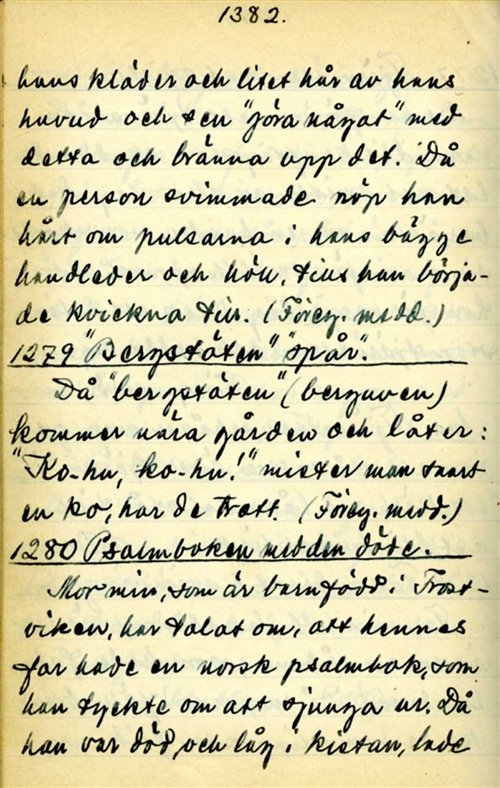 1382.
hans kläder och litet hår av hans
huvud och sen "göra något" med
detta och bränna upp det. Då
en person svimmade nöp han
hårt om pulsarna i hans bägge
handleder och höll, tills han börja-
de kvickna till. (Föreg. medd.)
1279 "Bergstöten" "spår".
Då "bergstöten" (berguven)
kommer nära gården och låter:
"Ko-hu, ko-hu!" mister man snart
en ko, har de trott. (Föreg. medd.)
1280 Psalmboken med den döde.
Mor min, som är barnfödd i Trost-
viken, har talat om, att hennes
far hade en norsk psalmbok, som
han tyckte om att sjunga ur. Då
han var död, och låg i kistan, lade